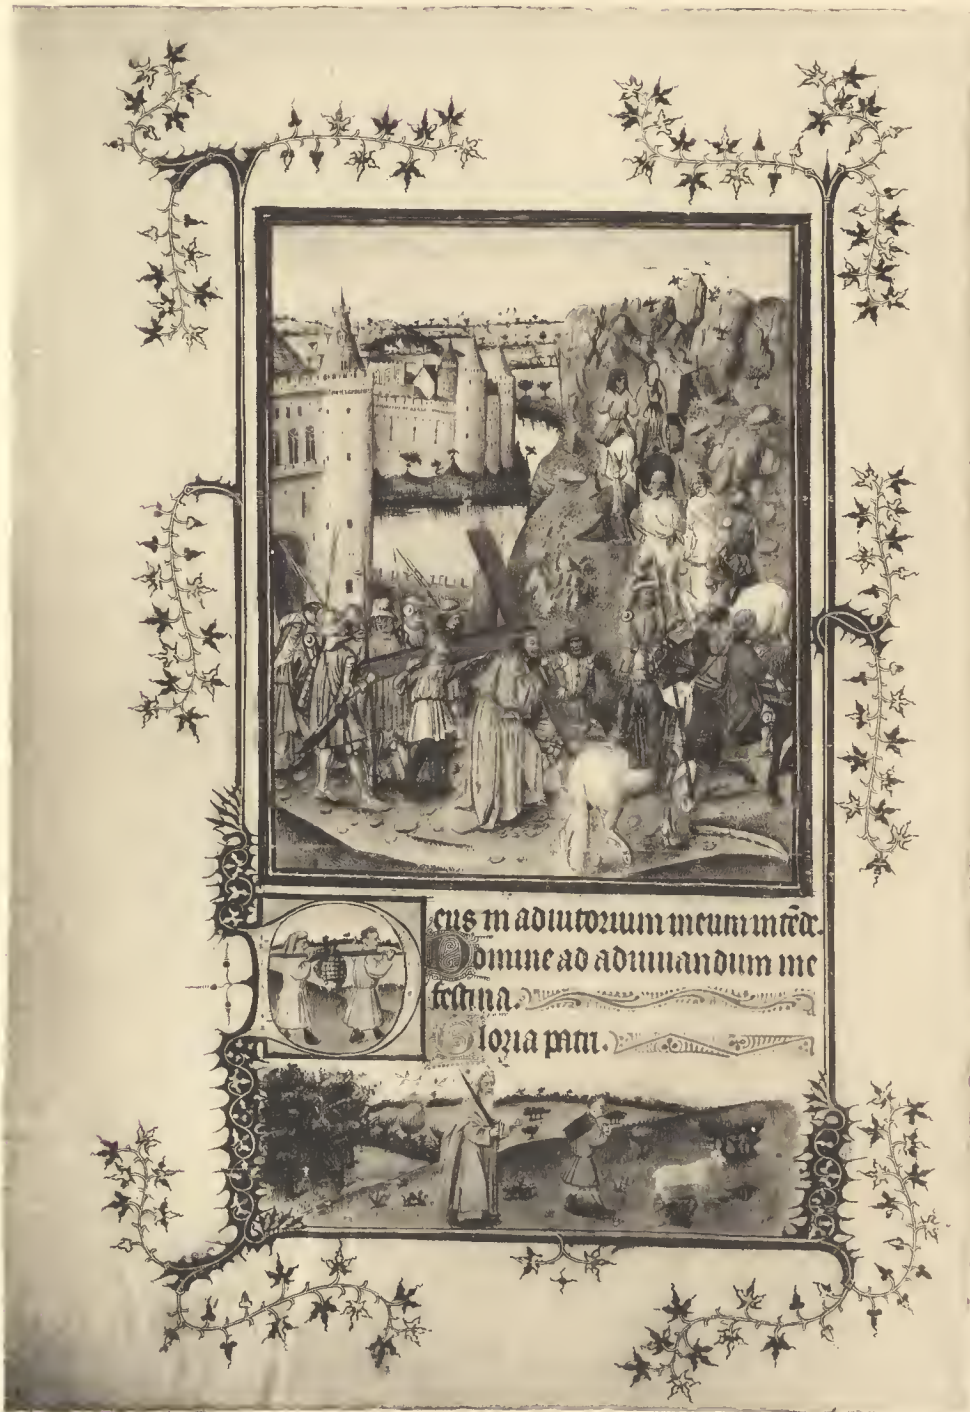 eus in adiutorium meum intēde.
Domine ad adiuuandum me
festina.
Gloria patri.